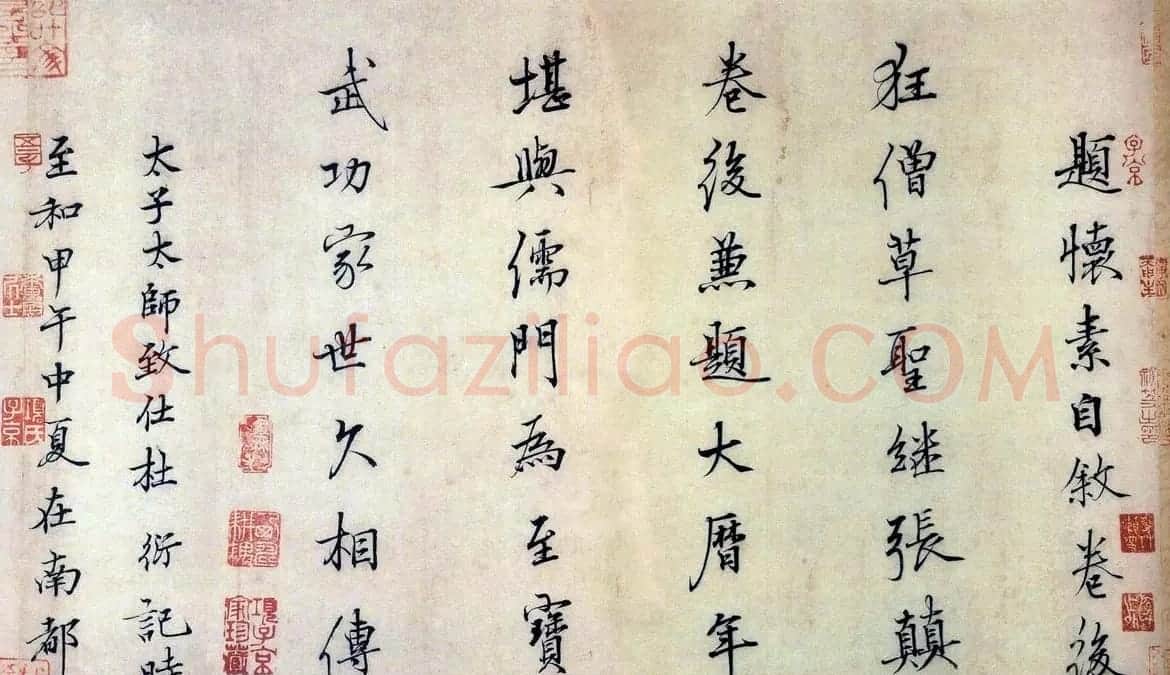 題懷素自敘卷後
狂僧草聖繼張顛
卷後兼題大曆年
堪與儒門為至寶
武功家世久相傳
太子太師致仕杜衍記時
至和甲午中夏在南都
Shufaziliao.COM
項氏子京
子京